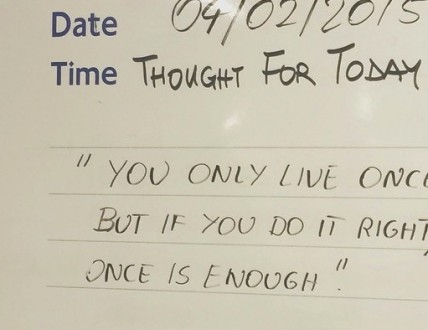 Date 04/02/2015
Time THOUGHT FOR TODAY
" YOU ONLY LIVE ONCE
BUT IF YOU DO IT RIGHT,
ONCE IS ENOUGH".